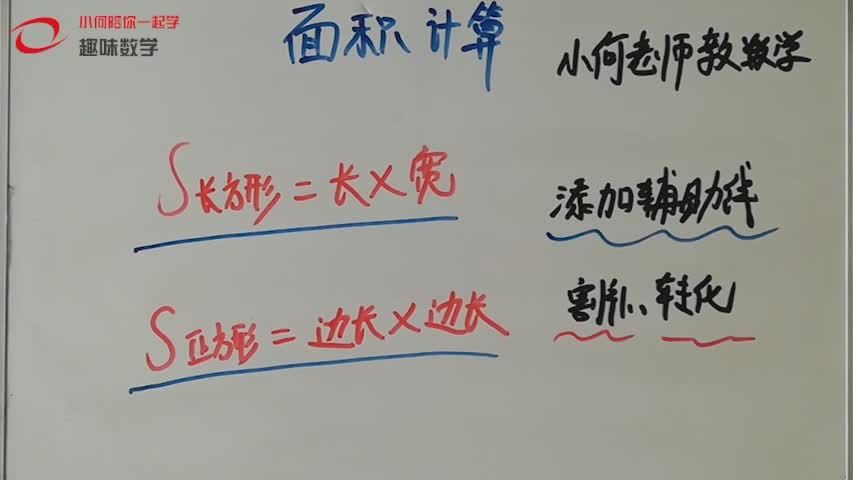 小何陪你一起学
趣味数学
面积计算
小何老师教数学
S长方形=长×宽
添加辅助线
S正方形=边长×边长
割补、转化